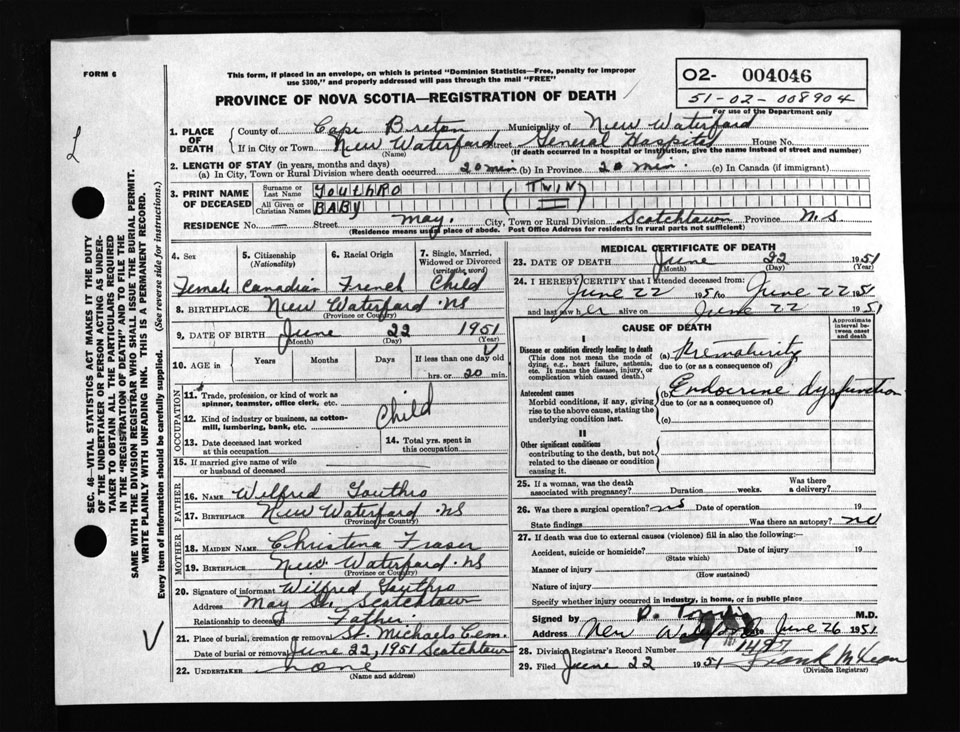 FORM 6
This form, if placed in an envelope, on which is printed "Dominion Statistics—Free, penalty for improper
use $300," and properly addressed will pass through the mail "FREE"
O2- 004046
51-02-008904
For use of the Department only
PROVINCE OF NOVA SCOTIA—REGISTRATION OF DEATH
1. PLACE OF DEATH
County of Cape Breton Municipality of New Waterford
If in City or Town New Waterford Street General Hospital House No.
(Name) (If death occurred in a hospital or institution, give the name instead of street and number)
2. LENGTH OF STAY (in years, months and days)
(a) In City, Town or Rural Division where death occurred 20 min (b) In Province 20 min. (c) In Canada (if immigrant)
3. PRINT NAME OF DECEASED
Surname or Last Name GOUTHRO (TWIN
All Given or Christian Names BABY II)
RESIDENCE No. — Street May. City, Town or Rural Division Scotchtown Province N.S.
(Residence means usual place of abode. Post Office Address for residents in rural parts not sufficient)
4. Sex 5. Citizenship (Nationality) 6. Racial Origin 7. Single, Married, Widowed or Divorced (write the word)
Female Canadian French Child
8. BIRTHPLACE New Waterford NS
(Province or Country)
9. DATE OF BIRTH June 22 1951
(Month) (Day) (Year)
10. AGE in Years Months Days If less than one day old
hrs. or 20 min.
OCCUPATION
11. Trade, profession, or kind of work as spinner, teamster, office clerk, etc.
12. Kind of industry or business, as cotton-mill, lumbering, bank, etc. Child
13. Date deceased last worked at this occupation 14. Total yrs. spent in this occupation
15. If married give name of wife or husband of deceased
FATHER
16. NAME Wilfred Gouthro
17. BIRTHPLACE New Waterford NS
(Province or Country)
MOTHER
18. MAIDEN NAME Christina Fraser
19. BIRTHPLACE New Waterford NS
(Province or Country)
20. Signature of informant Wilfred Gouthro
Address May St. Scotchtown
Relationship to deceased Father
21. Place of burial, cremation or removal St. Michaels Cem.
Date of burial or removal June 22, 1951 Scotchtown
22. UNDERTAKER none
(Name and address)
MEDICAL CERTIFICATE OF DEATH
23. DATE OF DEATH June 22 1951
(Month) (Day) (Year)
24. I HEREBY CERTIFY that I attended deceased from:
June 22 1951 to June 22 1951
and last saw her alive on June 22 1951
CAUSE OF DEATH
Approximate interval between onset and death
I
Disease or condition directly leading to death
(This does not mean the mode of dying, e.g., heart failure, asthenia, etc. It means the disease, injury, or complication which caused death.)
(a) Prematurity
due to (or as a consequence of)
Antecedent causes
Morbid conditions, if any, giving rise to the above cause, stating the underlying condition last.
(b) Endocrine dysfunction
due to (or as a consequence of)
(c)
II
Other significant conditions
contributing to the death, but not related to the disease or condition causing it.
25. If a woman, was the death associated with pregnancy? Duration weeks. Was there a delivery?
26. Was there a surgical operation? no Date of operation 19
State findings Was there an autopsy? no
27. If death was due to external causes (violence) fill in also the following:—
Accident, suicide or homicide? Date of injury 19
(State which)
Manner of injury
(How sustained)
Nature of injury
Specify whether injury occurred in industry, in home, or in public place
Signed by M.D.
Address New June 26 1951
28. Division Registrar's Record Number 1497
29. Filed June 22 1951 Frank McLean
(Division Registrar)
SEC. 46—VITAL STATISTICS ACT MAKES IT THE DUTY
OF THE UNDERTAKER OR PERSON ACTING AS UNDER-
TAKER TO OBTAIN ALL THE PARTICULARS REQUIRED
IN THE "REGISTRATION OF DEATH" AND TO FILE THE
SAME WITH THE DIVISION REGISTRAR WHO SHALL ISSUE THE BURIAL PERMIT.
WRITE PLAINLY WITH UNFADING INK. THIS IS A PERMANENT RECORD.
Every item of information should be carefully supplied. (See reverse side for instructions.)